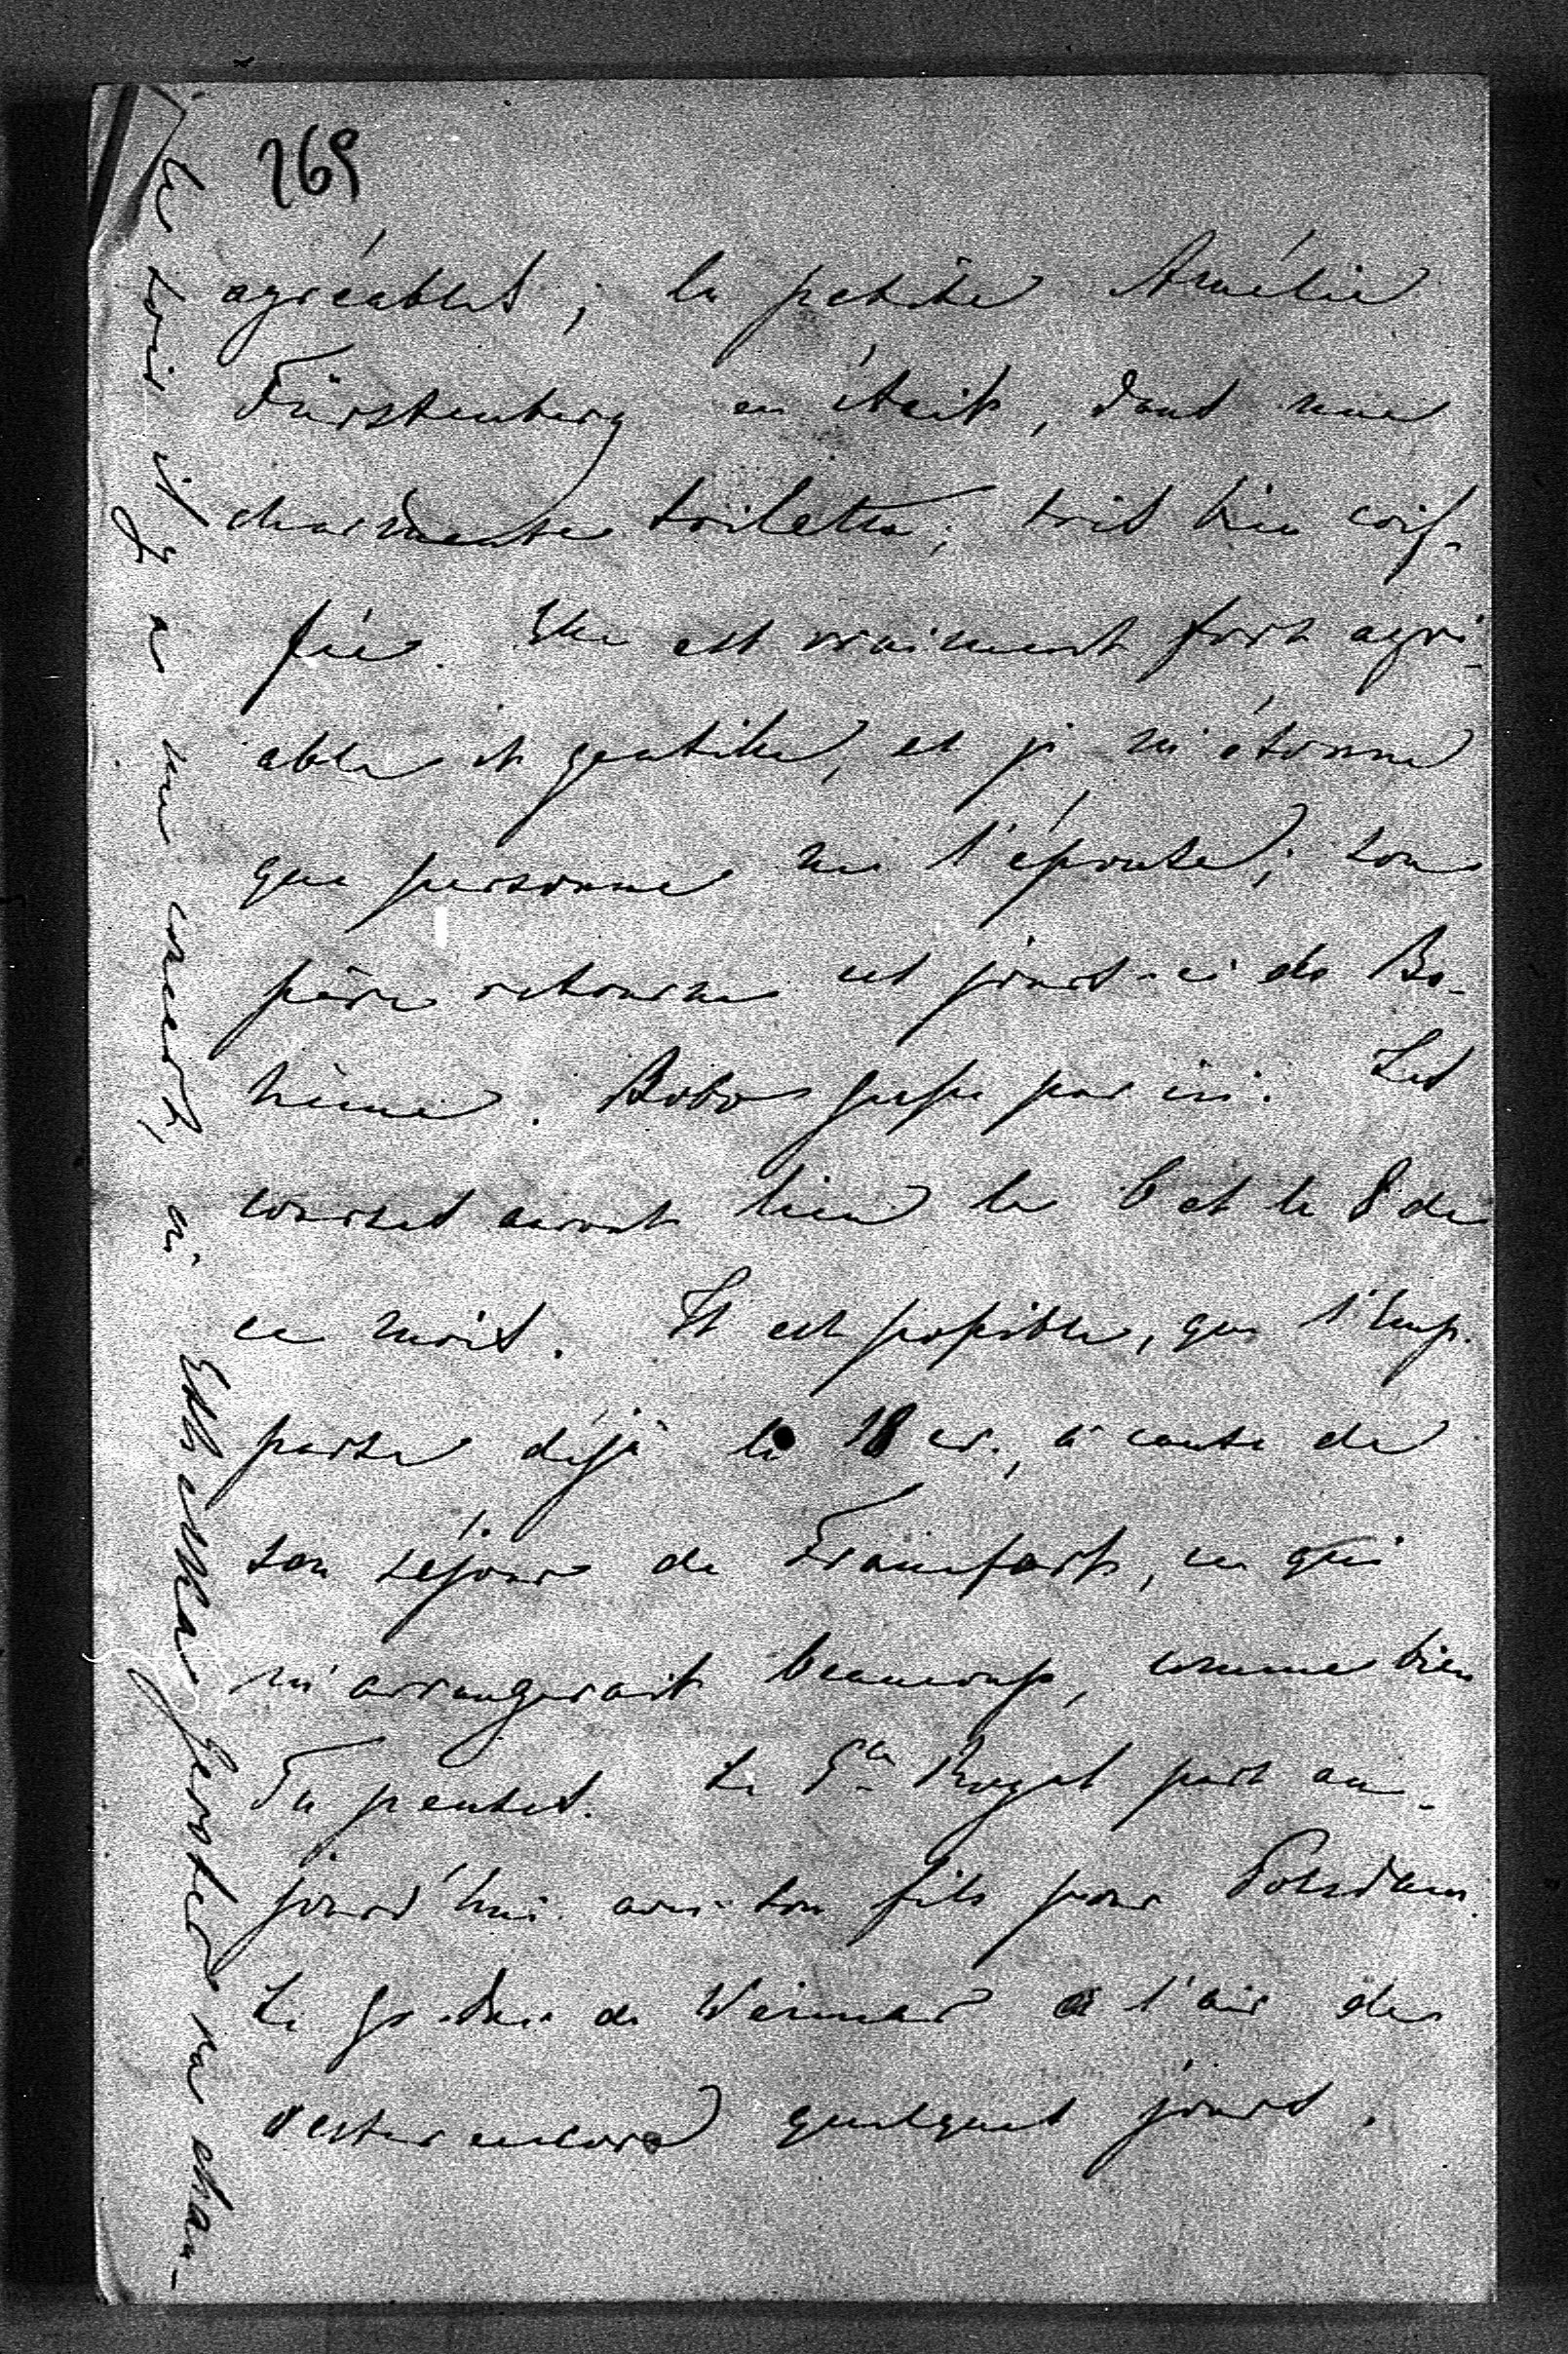 269
agréables; la petite Amélie
Fürstenberg en était, dans une
charmante toilette, très bien coif-
fée. Elle est vraiment fort agré-
able et gentille, et je m'étonne
que personne ne l'épouse; son
père retourne ces jours-ci de Bo-
hème. Bobo passe par ici. Les
courses auront lieu le 6 et le 8 de
ce mois. Il est possible, que l'Emp.
parte déjà le 18 cr., à cause de
son séjour de Francfort, ce qui
m'arrangerait beaucoup, comme bien
Tu penses. Le Royal part au-
jourd'hui avec son fils pour Potsdam.
Le Gr. Duc de Weimar a l'air de
rester encore quelques jours.
Ce soir il y a un concert, où
Etelka Gerster va chan-